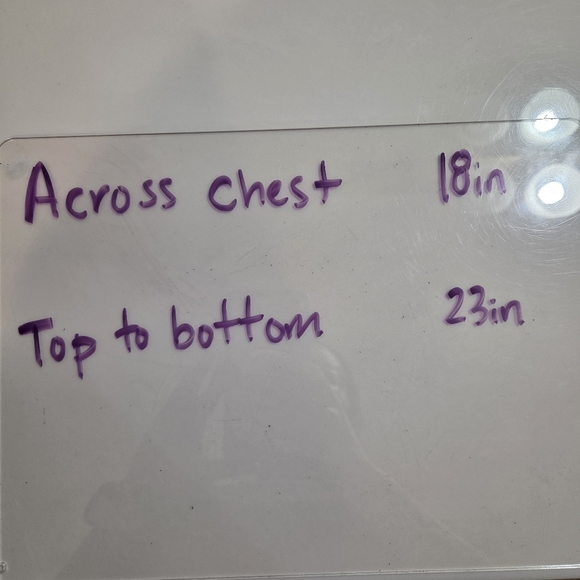 Across chest 18in
Top to bottom 23in